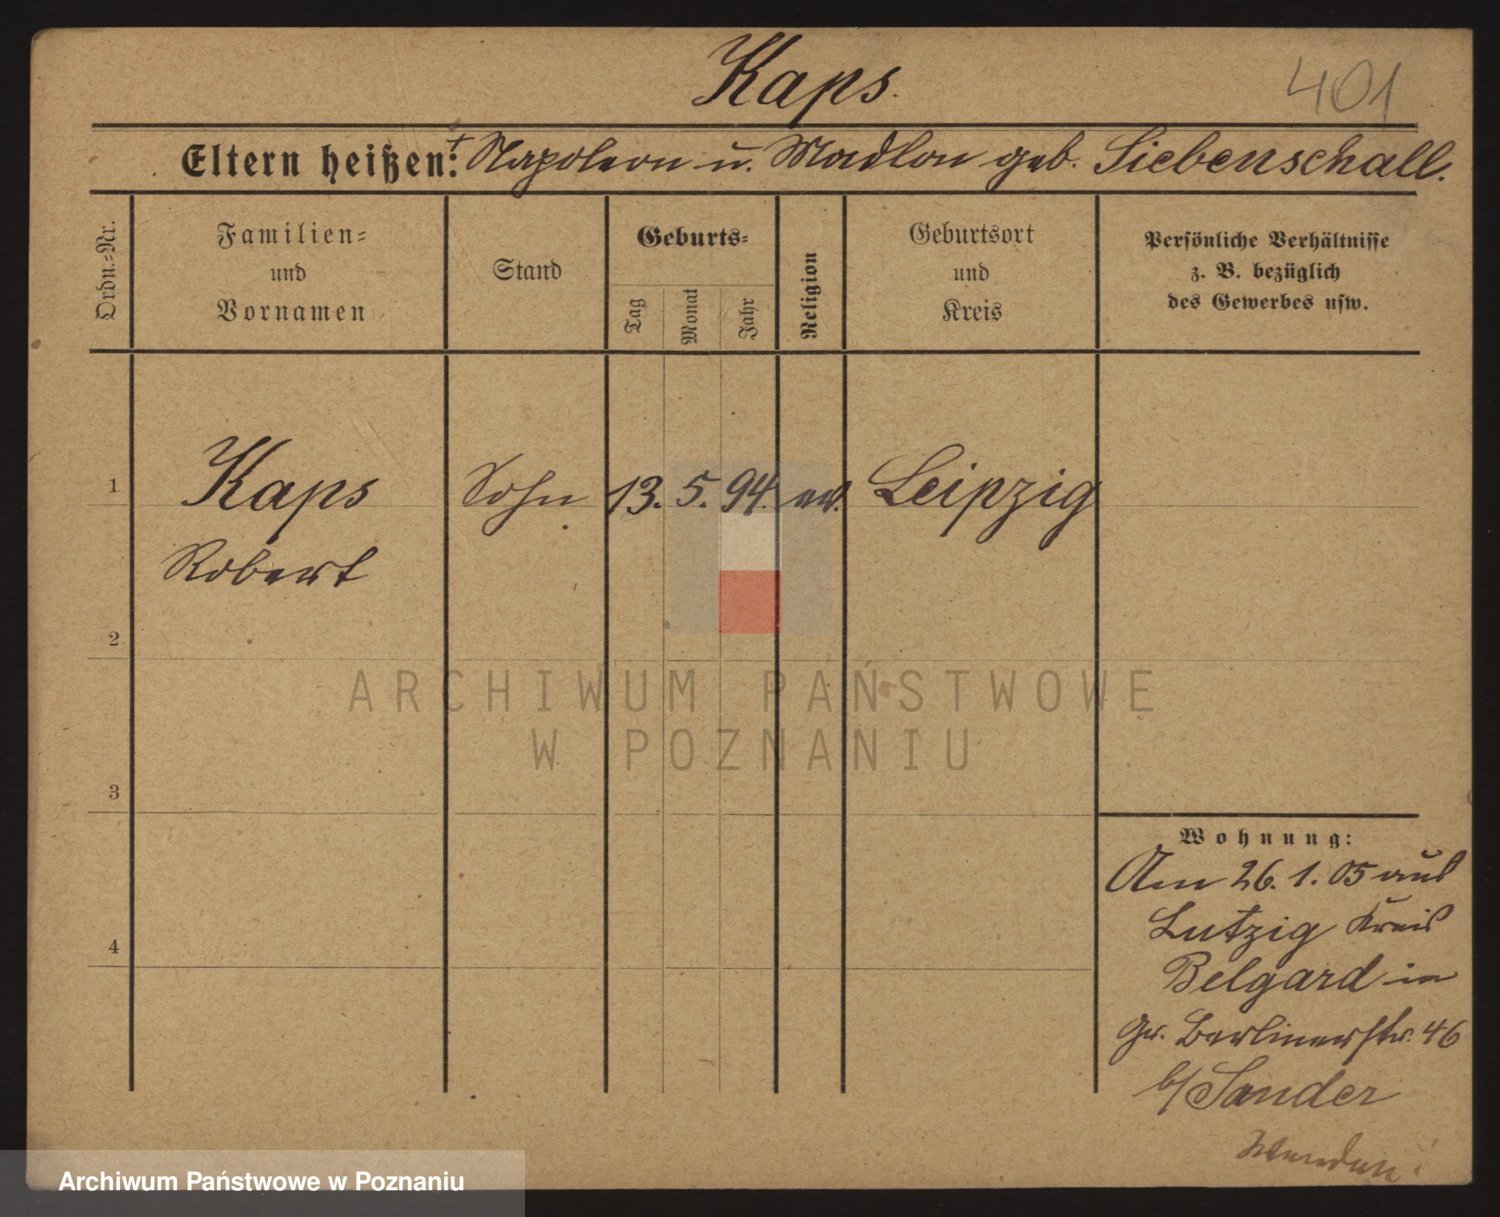 Kaps.
401
Eltern heißen: † Napoleon u. Madlon geb. Siebenschall.
Ordn.-Nr.
Familien-
und
Vornamen
Stand
Geburts-
Tag
Monat
Jahr
Religion
Geburtsort
und
Kreis
Persönliche Verhältnisse
z. B. bezüglich
des Gewerbes usw.
1 Kaps Sohn 13. 5. 94. ev. Leipzig
Robert
2
3
4
ARCHIWUM PAŃSTWOWE
W POZNANIU
Wohnung:
Am 26.1.05 aus
Lutzig Kreis
Belgard in
Gr. Berlinerstr. 46
b/ Sander
Archiwum Państwowe w Poznaniu